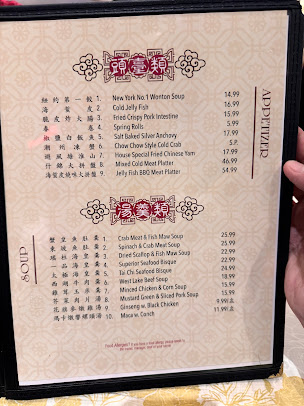 頭臺類
APPETIZER
紐約第一餛 1. New York No.1 Wonton Soup 14.99
海蜇皮 2. Cold Jelly Fish 16.99
脆皮炸大腸 3. Fried Crispy Pork Intestine 15.99
春卷 4. Spring Rolls 5.99
椒鹽白飯魚 5. Salt Baked Silver Anchovy 17.99
潮州凍蟹 6. Chow Chow Style Cold Crab S.P.
避風塘淮山 7. House Special Fried Chinese Yam 17.99
什錦大拼盤 8. Mixed Cold Meat Platter 46.99
海蜇皮燒味大拼盤 9. Jelly Fish BBQ Meat Platter 54.99
湯羹類
SOUP
蟹皇魚肚羹 1. Crab Meat & Fish Maw Soup 25.99
2. Spinach & Crab Meat Soup 22.99
瑤柱海皇羹 3. Dried Scallop & Fish Maw Soup 23.99
一品海皇羹 4. Superior Seafood Bisque 22.99
太極海皇羹 5. Tai Chi Seafood Bisque 24.99
西湖牛肉羹 6. West Lake Beef Soup 18.99
雞茸玉米羹 7. Minced Chicken & Corn Soup 15.99
芥菜肉片湯 8. Mustard Green & Sliced Pork Soup 15.99
9. Ginseng w. Black Chicken 9.99/
瑪卡燉響螺頭湯 10. Maca w. Conch 11.99/